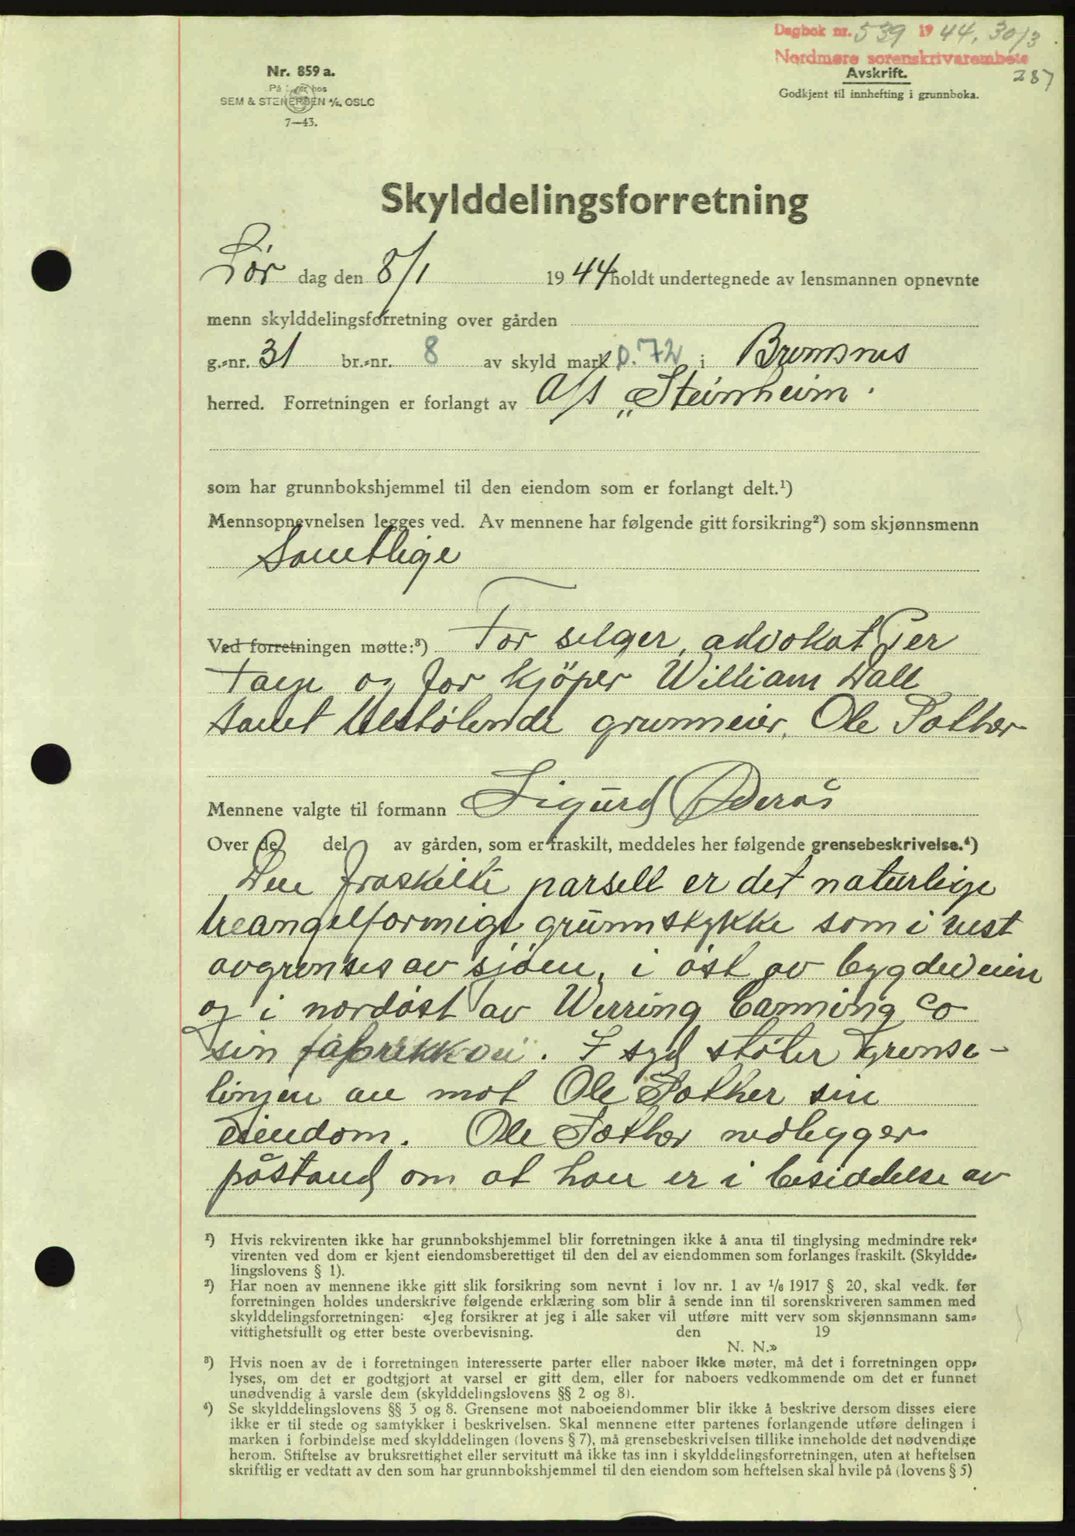 Dagbok nr. 539 1944, 30/3
Nordmøre sorenskrivarembete
287
Nr. 859 a.
På lager hos
SEM & STENERSEN A/S, OSLO
7—43.
Avskrift.
Godkjent til innhefting i grunnboka.
Skylddelingsforretning
Lør dag den 8/1 1944 holdt undertegnede av lensmannen opnevnte
menn skylddelingsforretning over gården
g.-nr. 31 br.-nr. 8 av skyld mark 0.72 i Bremsnes
herred. Forretningen er forlangt av A/S „Steinheim.
som har grunnbokshjemmel til den eiendom som er forlangt delt.¹)
Mennsopnevnelsen legges ved. Av mennene har følgende gitt forsikring²) som skjønnsmenn
Samtlige
Ved forretningen møtte:³) For selger, advokat Per
og for kjöper William Dall
samt tilstøtende grunneier, Ole Sæther
Mennene valgte til formann Sigurd Øderås
Over de del av gården, som er fraskilt, meddeles her følgende grensebeskrivelse.⁴)
Den fraskilte parsell er det naturlige
treangelformige grunnstykke som i vest
avgrenses av sjöen, i öst av bygdeveien
og i nordöst av Werring Canning Co
sin fabrikk. I syd støter grense-
linjen an mot Ole Sæther sin
eiendom. Ole Sæther nedlegger
påstand om at han er i besiddelse av
¹) Hvis rekvirenten ikke har grunnbokshjemmel blir forretningen ikke å anta til tinglysing medmindre rek-
virenten ved dom er kjent eiendomsberettiget til den del av eiendommen som forlanges fraskilt. (Skyldde-
lingslovens § 1).
²) Har noen av mennene ikke gitt slik forsikring som nevnt i lov nr. 1 av 1/6 1917 § 20, skal vedk. før
forretningen holdes underskrive følgende erklæring som blir å sende inn til sorenskriveren sammen med
skylddelingsforretningen: «Jeg forsikrer at jeg i alle saker vil utføre mitt verv som skjønnsmann sam-
vittighetsfullt og etter beste overbevisning. den 19
N. N.»
³) Hvis noen av de i forretningen interesserte parter eller naboer ikke møter, må det i forretningen opp-
lyses, om det er godtgjort at varsel er gitt dem, eller for naboers vedkommende om det er funnet
unødvendig å varsle dem (skylddelingslovens §§ 2 og 8).
⁴) Se skylddelingslovens §§ 3 og 8. Grensene mot naboeiendommer blir ikke å beskrive dersom disses eiere
ikke er til stede og samtykker i beskrivelsen. Skal mennene etter partenes forlangende utføre delingen i
marken i forbindelse med skylddelingen (lovens § 7), må grensebeskrivelsen tillike inneholde det nødvendige
herom. Stiftelse av bruksrettighet eller servitutt må ikke tas inn i skylddelingsforretningen, uten at heftelsen
skriftlig er vedtatt av den som har grunnbokshjemmel til den eiendom som heftelsen skal hvile på (lovens § 5)